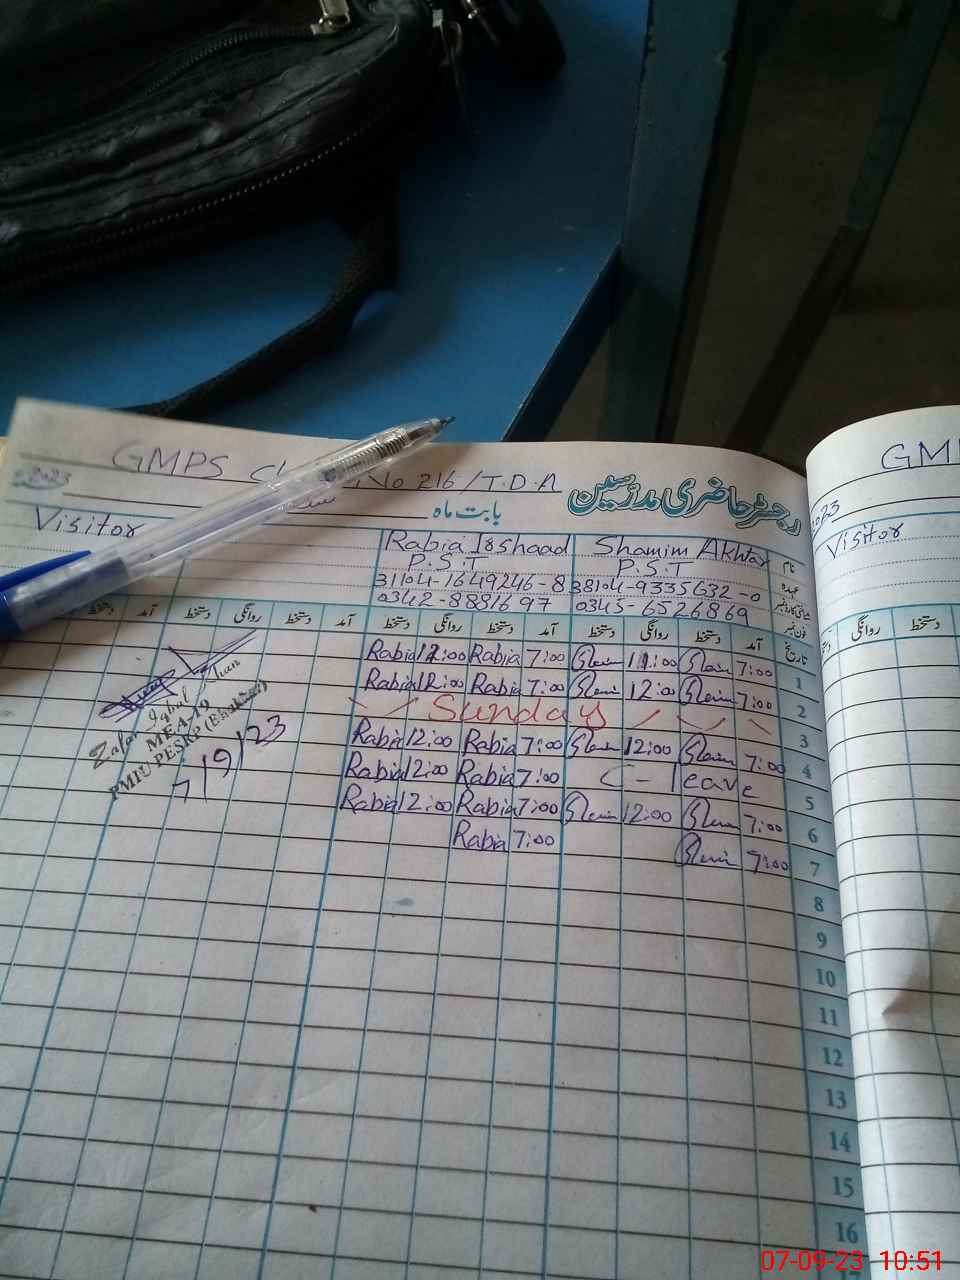 GMPS No 216/T.D.A
رجسٹر حاضری مدرسین
2023
بابت ماہ
GM
2023
Visitor
Rabia Irshaad
Shamim Akhtar
نام
Visitor
P.S.T
P.S.T
عہدہ
31104-1649246-8
38104-9335632-0
0342-8881697
0345-6526869
فون نمبر
تاریخ
آمد
دستخط
روانگی
دستخط
آمد
دستخط
روانگی
دستخط
آمد
دستخط
روانگی
دستخط
آمد
دستخط
روانگی
دستخط
Rabia 12:00 Rabia 7:00 11:00 7:00 1
Rabia 12:00 Rabia 7:00 12:00 7:00 2
Sunday 3
Rabia 12:00 Rabia 7:00 12:00 7:00 4
Rabia 12:00 Rabia 7:00 C-leave 5
Rabia 12:00 Rabia 7:00 12:00 7:00 6
Rabia 7:00 7:00 7
Zafar Iqbal Khan
MEA-19
PMIU-PESRP (Bhakkar)
7/9/23
8
9
10
11
12
13
14
15
16
07-09-23 10:51